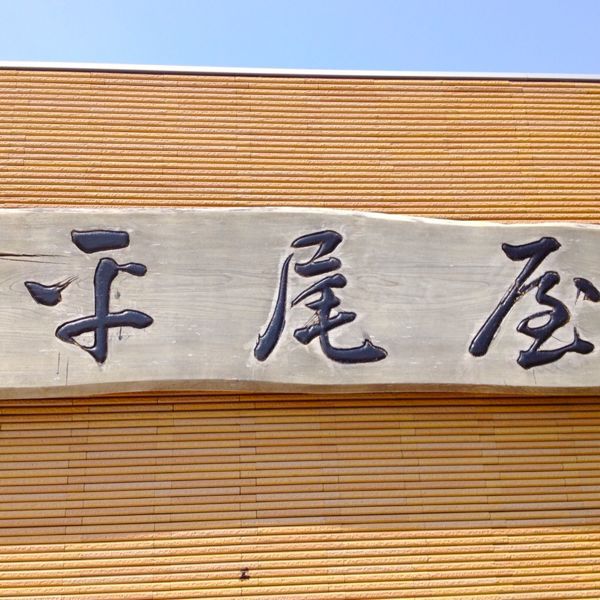 平尾屋